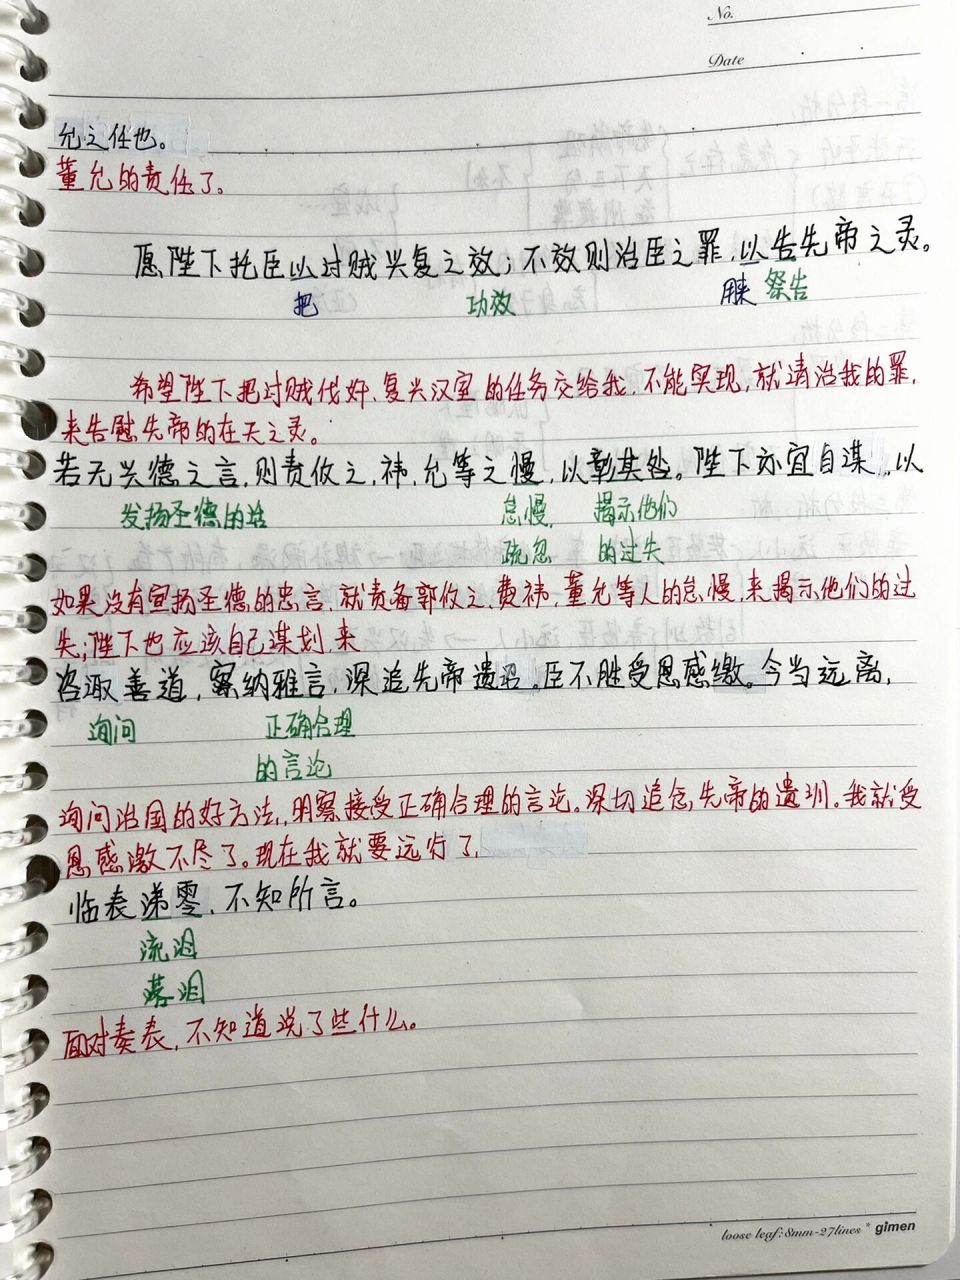 No.
Date
允之任也。
董允的责任了。
愿陛下托臣以讨贼兴复之效；不效则治臣之罪，以告先帝之灵。
把 功效 用来 祭告
希望陛下把讨贼伐奸、复兴汉室的任务交给我，不能实现，就请治我的罪，
来告慰先帝的在天之灵。
若无兴德之言，则责攸之，祎，允等之慢，以彰其咎。陛下亦宜自谋，以
发扬圣德的话 怠慢、 揭示他们
疏忽 的过失
如果没有宣扬圣德的忠言，就责备郭攸之、费祎，董允等人的怠慢，来揭示他们的过
失；陛下也应该自己谋划，来
咨诹善道，察纳雅言，深追先帝遗诏。臣不胜受恩感缴。今当远离，
询问 正确合理
的言论
询问治国的好方法，明察接受正确合理的言论。深切追念先帝的遗训。我就受
恩感激不尽了。现在我就要远行了，
临表涕零，不知所言。
流泪
落泪
面对奏表，不知道说了些什么。
loose leaf:8mm-27lines * gimen